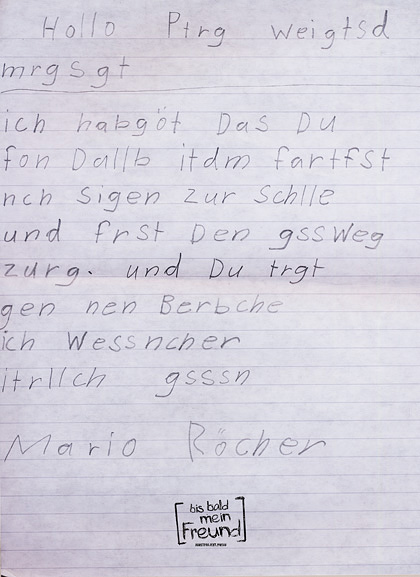 Hollo Ptrg weigtsd
mrgsgt
ich habgöt Das Du
fon Dallb itdm fartfst
nch Sigen zur Schlle
und frst Den gssWeg
zurg. und Du trgt
gen nen Berbche
ich Wessncher
itrllch gsssn
Mario Röcher
bis bald
mein
Freund